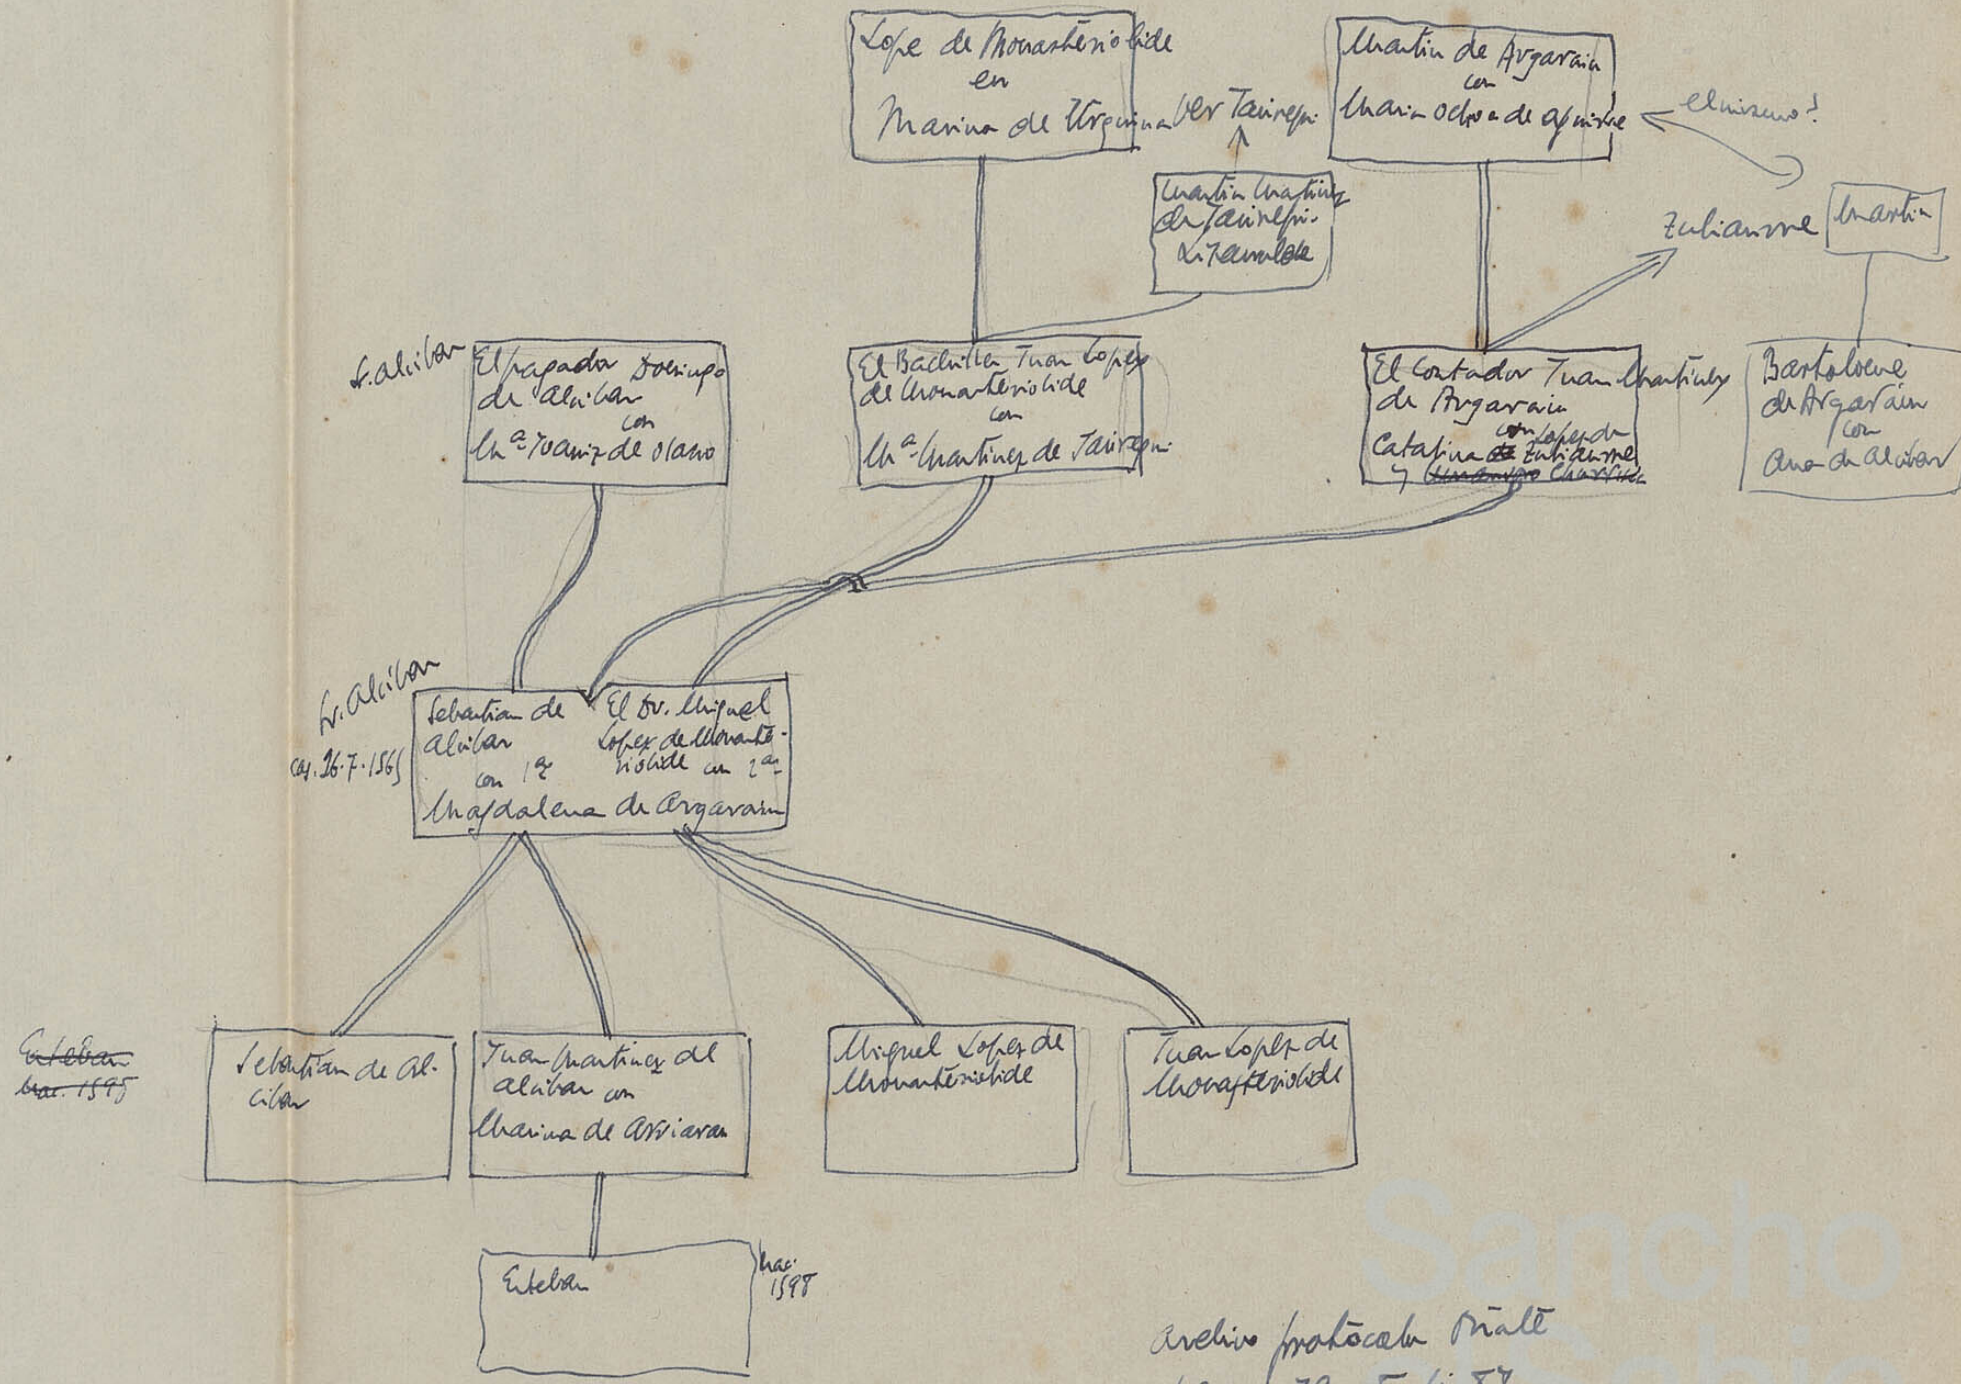 Lope de Monasteriobide
en
Marina de Urquina
Ver Jauregui
Martin de Argarain
con
Maria Ochoa de Aguirre
el mismo?
Martin Martinez
de Jauregui
Zubiaurre
Martin
Sr. Alcibar
El pagador Domingo
de Alcibar
con
Mª Joaniz de Olano
El Bachiller Juan Lopez
de Monasteriobide
con
Mª Martinez de Jauregui
El Contador Juan Martinez
de Argarain
con Lopez de
Catalina de Zubiaurre
y
Bartolome
de Argarain
con
Ana de Alcibar
Sr. Alcibar
cas. 26.7.1565
Sebastian de
Alcibar
con 1ªs
El Dr. Miguel
Lopez de Monaste-
riobide con 2ªs
Magdalena de Argarain
Esteban
nac. 1595
Sebastian de Al-
cibar
Juan Martinez de
Alcibar con
Marina de Arriaran
Miguel Lopez de
Monasteriobide
Juan Lopez de
Monasteriobide
Esteban
nac.
1598
Sancho
Archivo protocolos Oñate